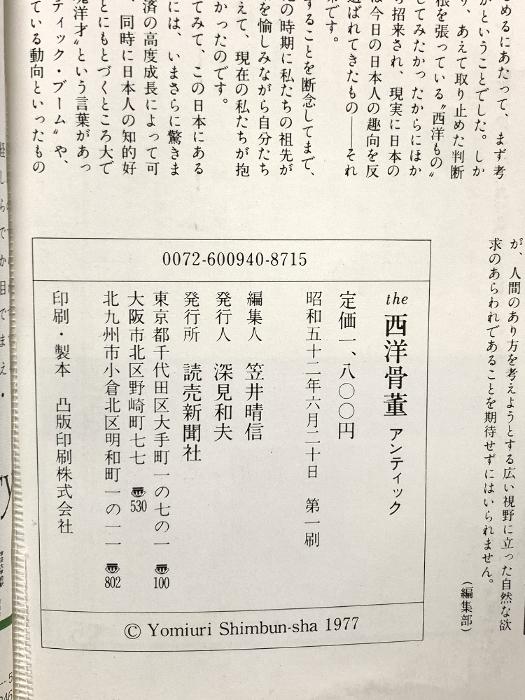 が、人間のあり方を考えようとする広い視野に立った自然な欲
求のあらわれであることを期待せずにはいられません。
（編集部）
めるにあたって、まず考
がということでした。しか
り、あえて取り止めた判断
根を張っている〝西洋もの〟
してみたかったからにほか
り招来され、現実に日本の
は今日の日本人の趣向を反
選ばれてきたもの――それ
です。
することを断念してまで、
の時期に私たちの祖先が
を愉しみながら自分たち
えて、現在の私たちが抱
かったのです。
てみて、この日本にある
には、いまさらに驚きま
済の高度成長によって可
、同時に日本人の知的好
とにもとづくところ大で
洋才〟という言葉があっ
ティック・ブーム〟や、
ている動向といったもの
0072-600940-8715
the 西洋骨董 アンティック
定価一、八〇〇円
昭和五十二年六月二十日　第一刷
編集人　笠井晴信
発行人　深見和夫
発行所　読売新聞社
東京都千代田区大手町一の七の一 〠100
大阪市北区野崎町七七 〠530
北九州市小倉北区明和町一の一一 〠802
印刷・製本　凸版印刷株式会社
© Yomiuri Shimbun-sha 1977